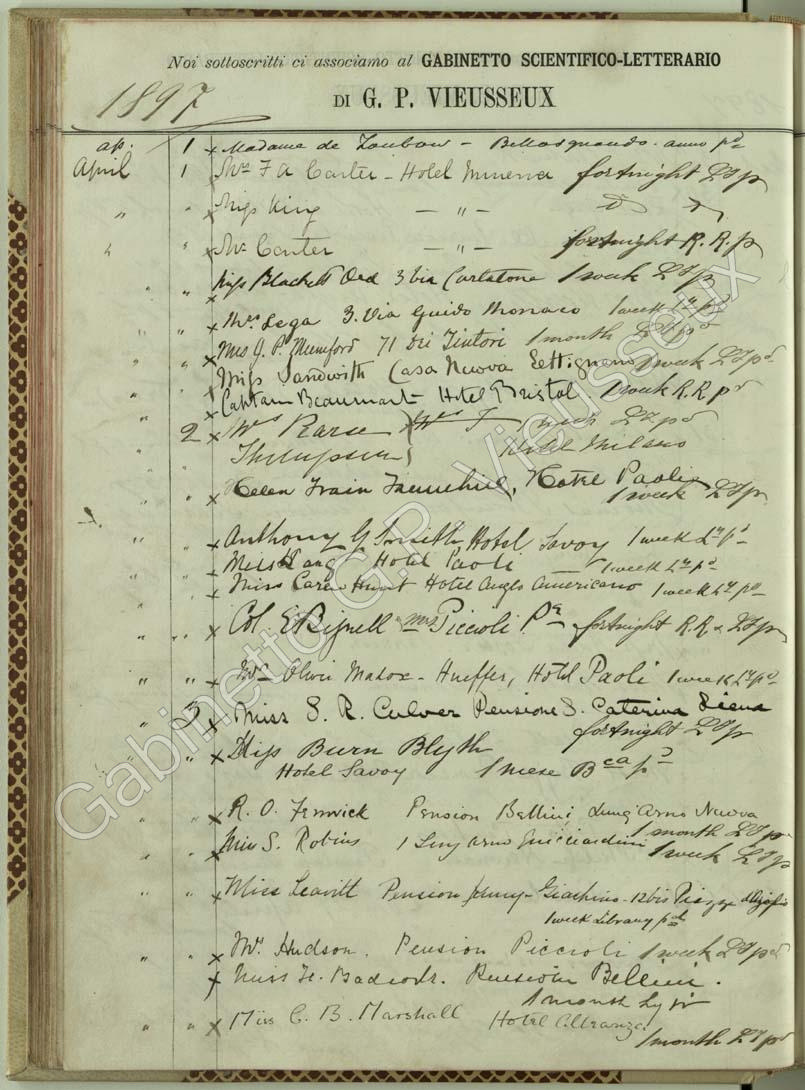 Noi sottoscritti ci associamo al GABINETTO SCIENTIFICO-LETTERARIO
1897 DI G. P. VIEUSSEUX
ap. 1 x Madame de - Bellosguardo. anno pd
April 1 x Mrs F A Carter - Hotel Minerva fortnight LTp
" " x Miss King - " - D
" " x Mr Carter - " - fortnight R.R.p
" " x Miss Blackett Ord 3 via 1 week LTp
" " x Mrs Lega 3. Via Guido Monaco 1 week Lypd
" " x Mrs J. P. Mumford 71 Dei Tintori 1 month
" " Miss Sandwith Casa Nuova Settignano 1 week LTpd
" " x Captain Beaumont Hotel Bristol. 1 week R.R pd
" 2 x Mrs Pearse 1 week pd
" " Thompson Hotel Milano
" " x Helen Train Hotel Paoli
1 week LTp
" " x Anthony G Smith Hotel Savoy 1 week Lypd
x Miss Hotel Paoli - 1 week Lypd
x Miss Carew Hunt Hotel Anglo Americano 1 week Lypd
" " x Col. E Bignell Piccioli Pn fortnight R.R & LTp
" " x Mrs Oliver Madox-Hueffer, Hotel Paoli 1 week Lypd
" 3 x Miss S. R. Culver Pensione S. Caterina Siena
fortnight LTp
" " x Miss Burn Blyth
Hotel Savoy 1 mese Bca pd
" " x R. O. Fenwick Pension Bellini Lung'Arno Nuovo
1 month LTp
" " x Miss S. Robins 1 Lung Arno Guicciardini 1 week LTp
" " x Miss Leavitt Pension Jenny-Giachino - 12 bis Piazza d'Azeglio
1 week Library pd
" " x Mrs Hudson. Pension Piccioli 1 week LTpd
x Miss Pension Bellini.
1 month Ly pd
" " x Miss C. B. Marshall Hotel
1 month LTpd
Gabinetto G.P. Vieusseux